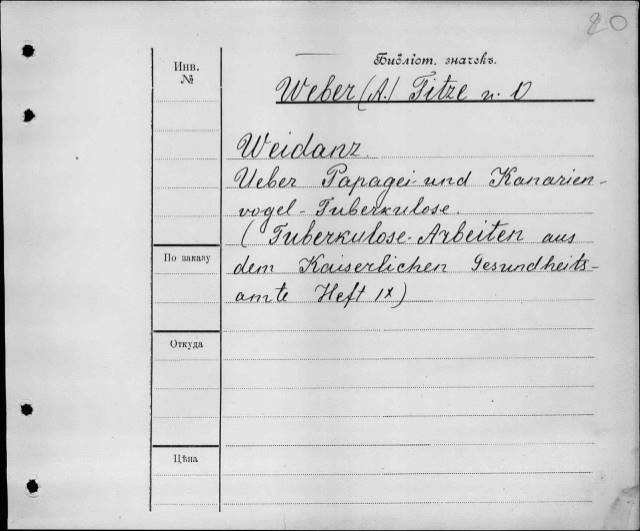 20
Библіот. значекъ.
Инв.
№
Weber (A.) Titze u. O
Weidanz
Ueber Papagei- und Kanarien-
vogel-Tuberkulose.
(Tuberkulose-Arbeiten aus
По заказу
dem Kaiserlichen Gesundheits-
amte Heft IX)
Откуда
Цѣна